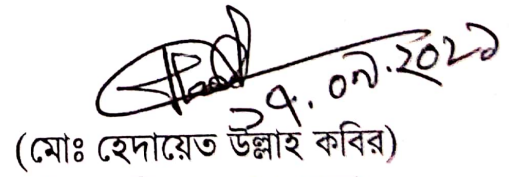 ২৭.০৭.২০২১
(মোঃ হেদায়েত উল্লাহ কবির)